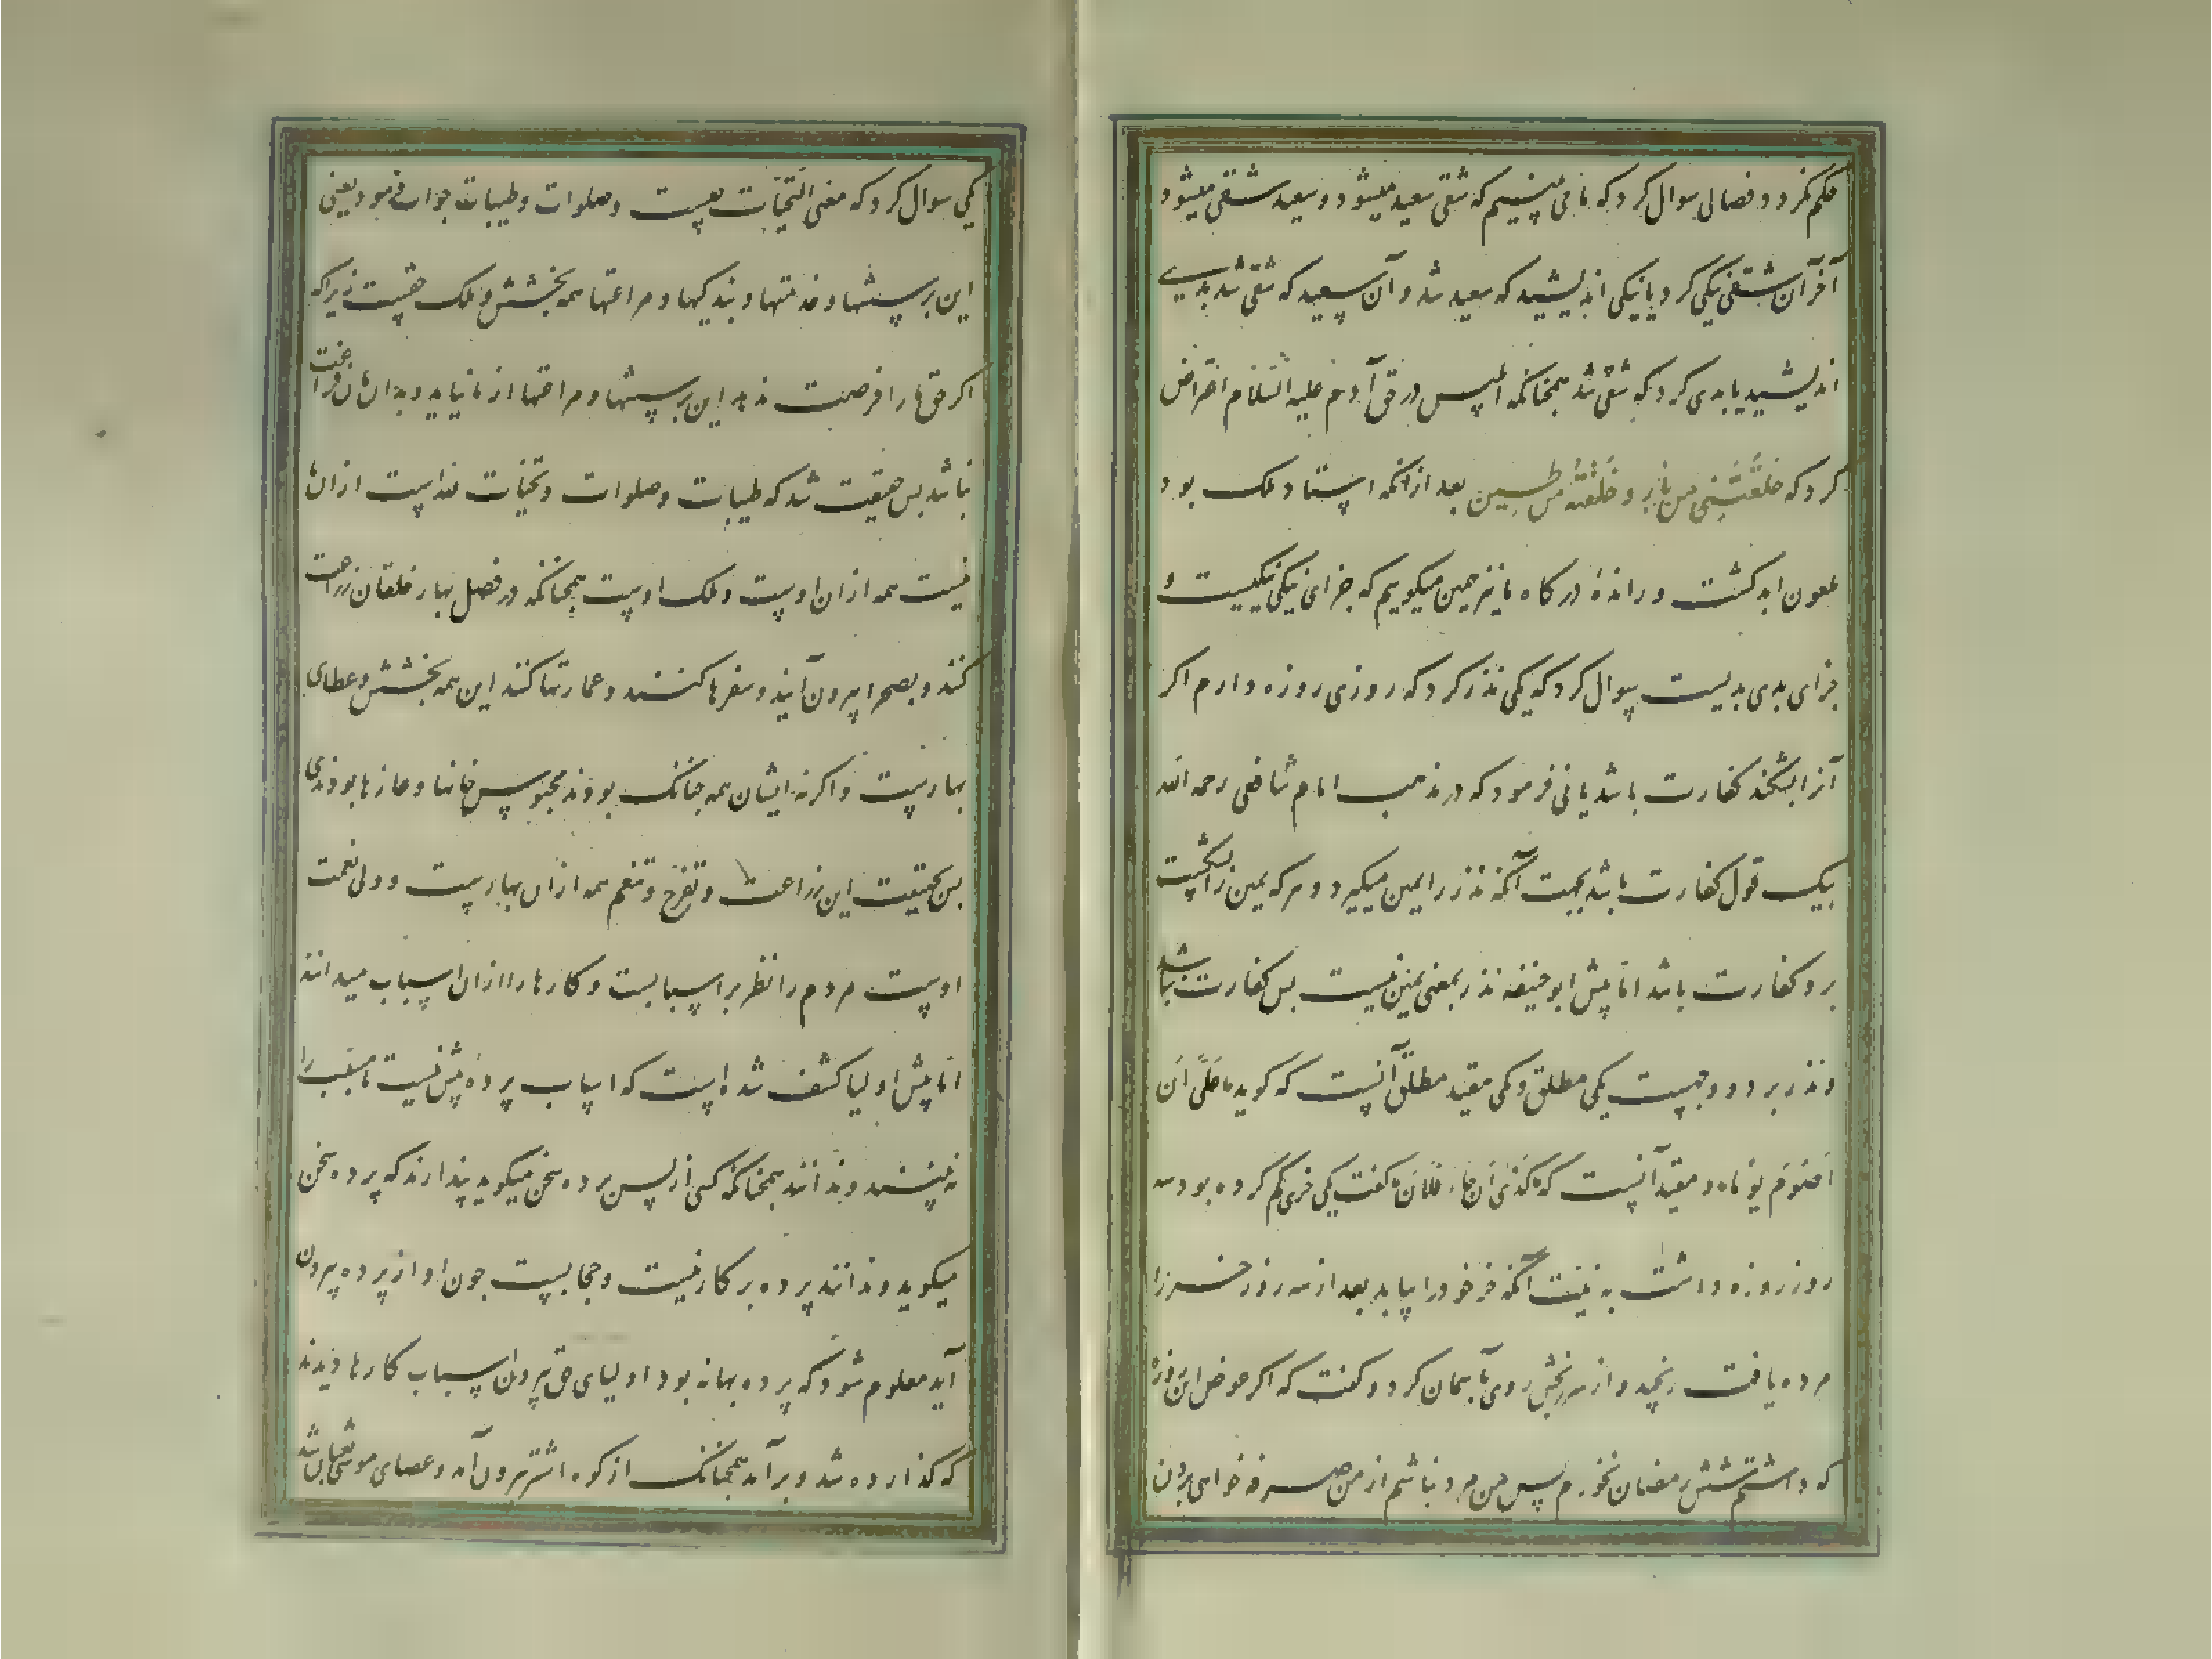 حکم نکرد و فصالی سوال کرد که ما می بینیم که شقی سعید میشود و سعید شقی میشود
آخر آن شقی نیکی کرد یا نیکی اندیشید که سعید شد و آن سعید که شقی شد بدیی
اندیشید یا بدی کرد که شقی شد همچنانکه ابلیس در حق آدم علیه السلام اعتراض
کرد که خلقتنی من نار و خلقته من طین بعد از آنکه استاد ملک بود
ملعون ابد کشت و رانده درکاه ما نیز همین میکوییم که جزای نیکی نیکیست و
جزای بدی بدیست سوال کرد که یکی نذر کرد که روزی روزه دارم اکر
آنرا بشکند کفارت باشد یا نی فرمود که در مذهب امام شافعی رحمه الله
بیک قول کفارت باشد بجهت آنکه نذر را یمین میکیرد و هرکه یمین را شکست
برو کفارت باشد اما پیش ابو حنیفه نذر بمعنی یمین نیست بس کفارت نباشد
و نذر بر دو وجهیست یکی مطلق و یکی مقید مطلق آنست که کوید علی ان
اصوم یوماه و مقید آنست که کذی ان جاء فلان کفت یکی خری کم کرده بود سه
روز روزه داشت به نیت آنکه خر خود را بیابد بعد از سه روز خر را
مرده یافت رنجید و از سر رنجش روی بآسمان کرد و کفت که اکر عوض این روزه
که داشتم شش رمضان نخورم پس من مرد نباشم از من صرفه خواهی بردن
یکی سوال کرد که معنی التحیات چیست و صلوات و طیبات جواب فرمود یعنی
این پرستشها و خدمتها و بندکیها و مراعتها همه بخشش و ملک حقست زیرا که
اکر حق ما را فرصت ندهد این پرستشها و مراعتها از ما نیاید و بدان مان فراغت
نباشد بس حقیقت شد که طیبات و صلوات و تحیات خداست از ان ما
نیست همه از ان اوست و ملک اوست همچنانکه در فصل بهار خلقان زراعت
کنند و بصحرا بیرون آیند و سفرها کنند و عمارتها کنند این همه بخشش و عطای
بهارست و اکر نه ایشان همه چنانک بودند محبوس خانها و غارها بودندی
بس بحقیقت این زراعت و تفرج و تنعم همه از ان بهارست و ولی نعمت
اوست مردم را نظر بر اسبابست و کارها را از ان اسباب میدانند
اما پیش اولیا کشف شده است که اسباب پرده بیش نیست تا مسبب را
نبینند و ندانند همچنانکه کسی از پس پرده سخن میکوید پندارند که پرده سخن
میکوید و ندانند پرده بر کار نیست و حجابیست چون او از پرده بیرون
آید معلوم شود که پرده بهانه بود اولیای حق بیرون اسباب کارها دیدند
که کذارده شد و برآمد همچنانک از کوه اشتر بیرون آمد و عصای موسی ثعبان شد